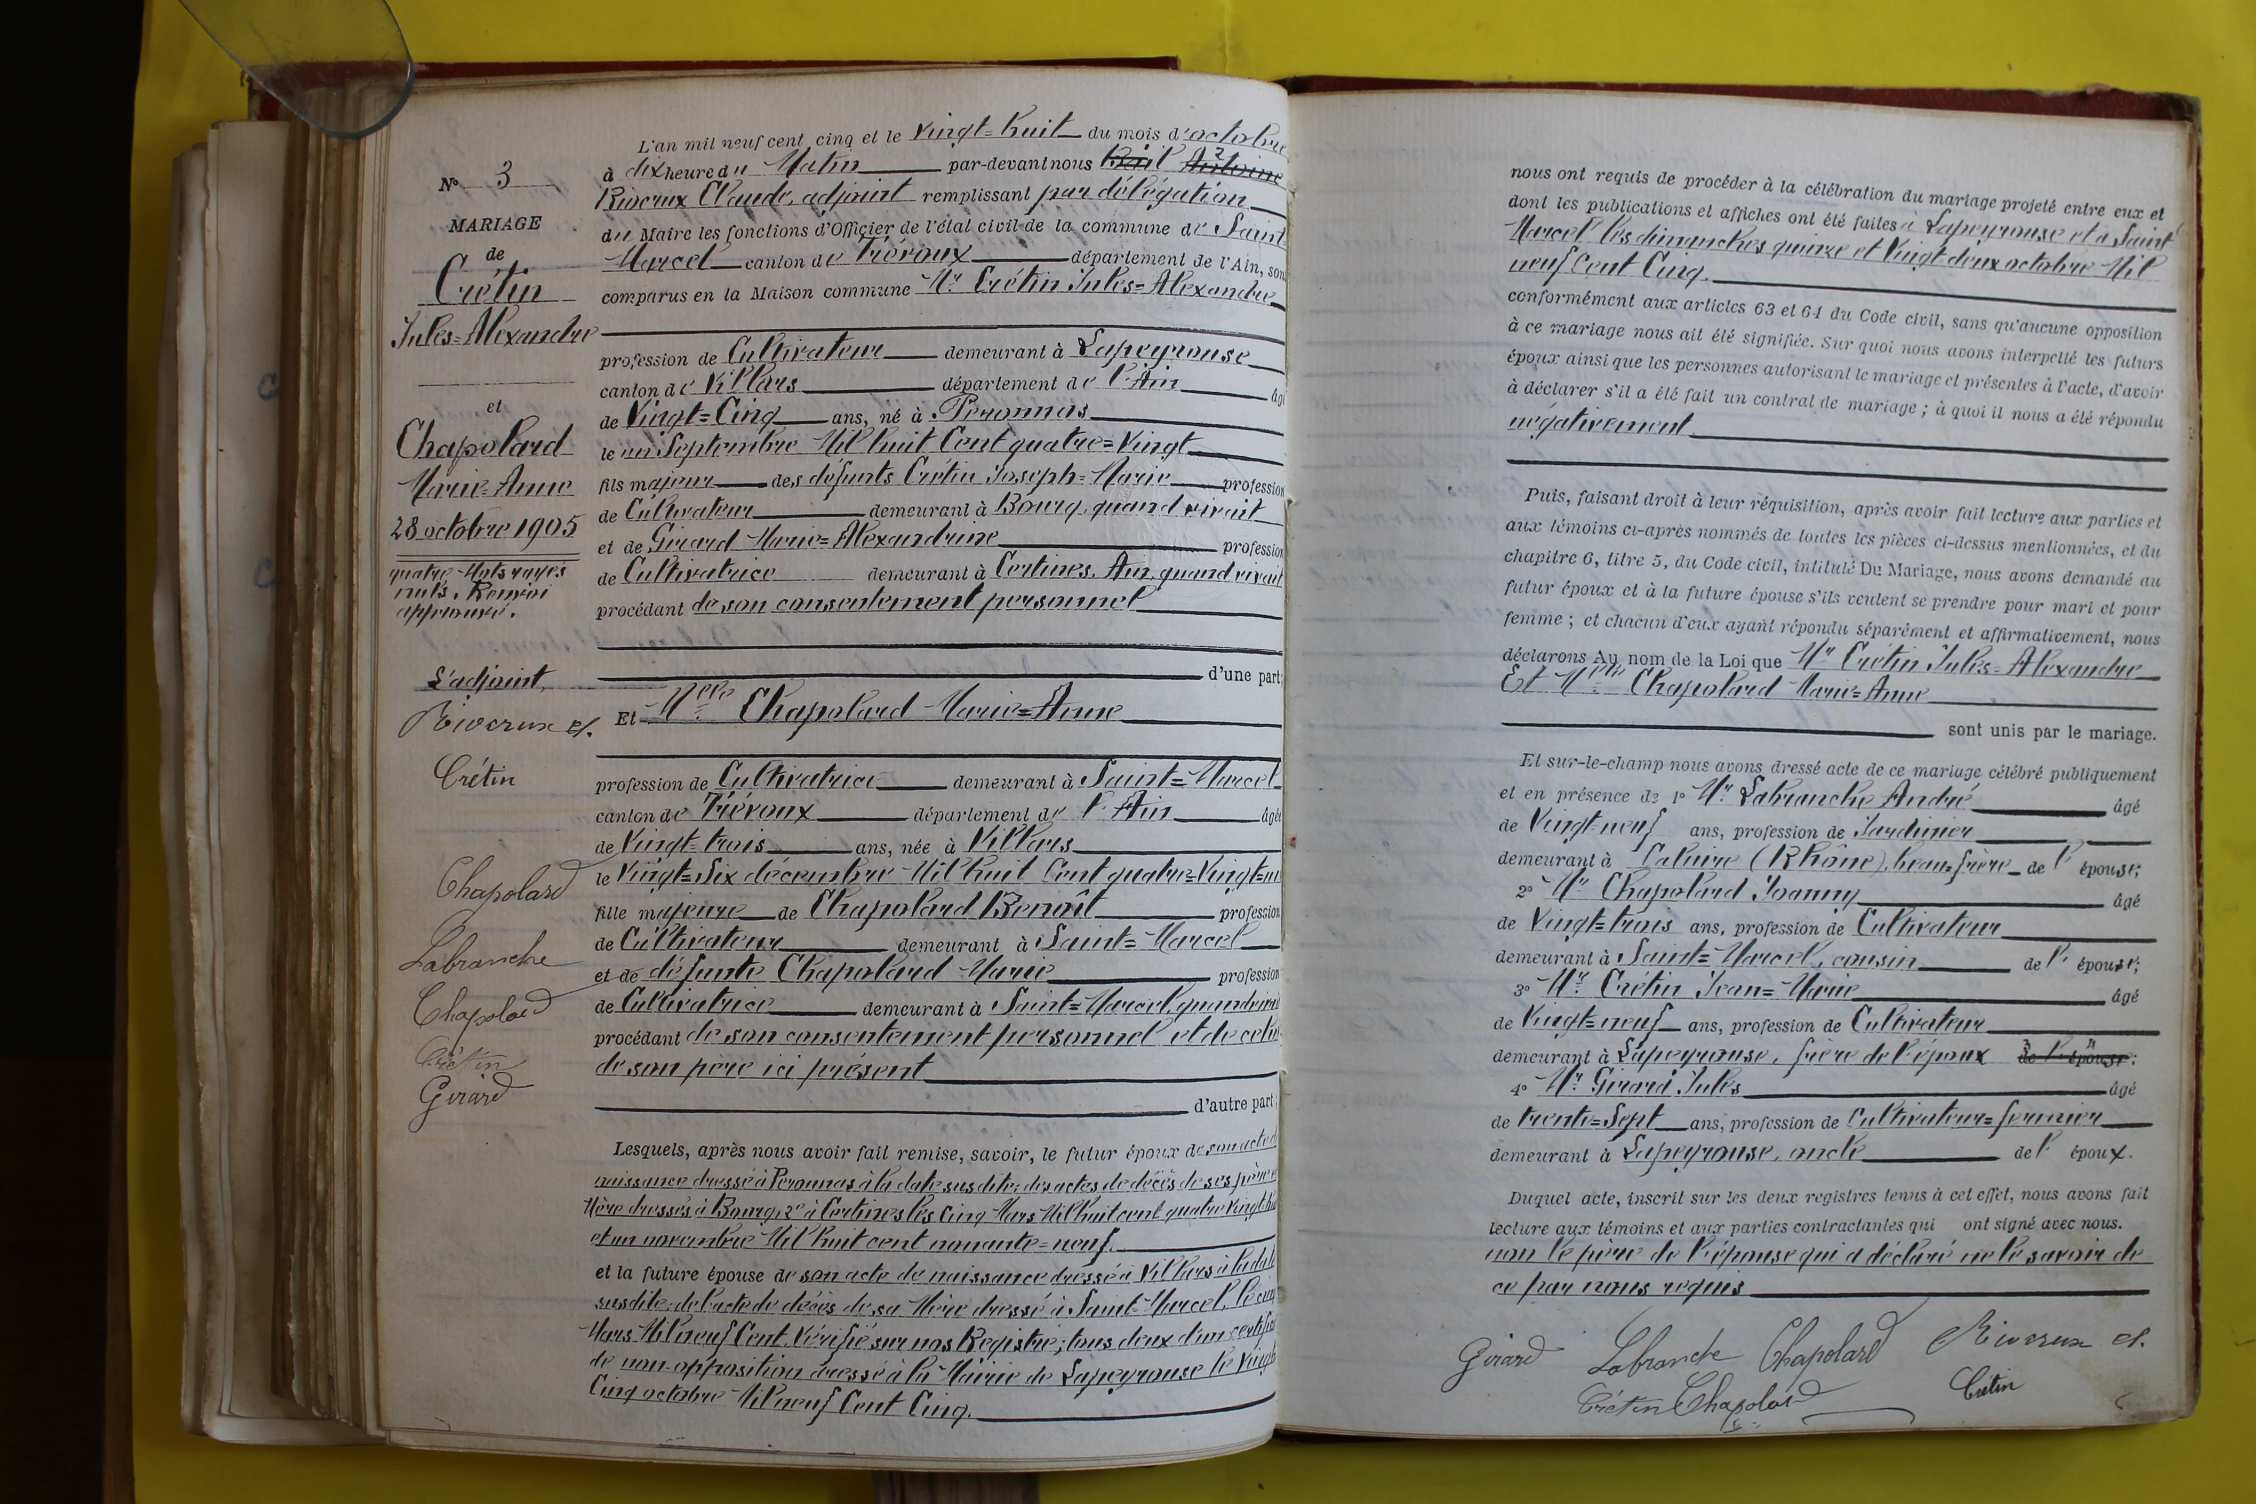 N° 3
MARIAGE
de
Crétin
Jules=Alexandre
et
Chapolard
Marie=Anne
28 octobre 1905
quatre Mots rayés
nuls. Renvoi
approuvé.
L'adjoint,
Riverux Cl.
Crétin
Chapolard
Labranche
Chapolard
Crétin
Girard
L'an mil neuf cent cinq et le Vingt=huit du mois d'octobre
à dix heure du Matin par-devant nous Antoine
Riverux Claude, adjoint remplissant par délégation
du Maire les fonctions d'Officier de l'état civil de la commune de Saint
Marcel canton de Trévoux département de l'Ain, sont
comparus en la Maison commune Mr Crétin Jules=Alexandre
profession de Cultivateur demeurant à Lapeyrouse
canton de Villars département de l'Ain âgé
de Vingt=Cinq ans, né à Péronnas
le un Septembre Mil huit Cent quatre=Vingt
fils majeur des défunts Crétin Joseph=Marie profession
de Cultivateur demeurant à Bourg, quand vivait
et de Girard Marie=Alexandrine profession
de Cultivatrice demeurant à Certines, Ain, quand vivait
procédant de son consentement personnel
d'une part;
Et Melle Chapolard Marie=Anne
profession de Cultivatrice demeurant à Saint=Marcel
canton de Trévoux département de l'Ain âgée
de Vingt=trois ans, née à Villars
le Vingt=Six décembre Mil huit Cent quatre=Vingt=un
fille majeure de Chapolard Benoît profession
de Cultivateur demeurant à Saint=Marcel
et de défunte Chapolard Marie profession
de Cultivatrice demeurant à Saint=Marcel, quand vivait
procédant de son consentement personnel et de celui
de son père ici présent
d'autre part;
Lesquels, après nous avoir fait remise, savoir, le futur époux de son acte de
naissance dressé à Péronnas à la date susdite; des actes de décès de ses père et
Mère dressés à Bourg, 2e à Certines les Cinq Mars Mil huit cent quatre Vingt
et un novembre Mil huit cent nonante=neuf.
et la future épouse de son acte de naissance dressé à Villars à la date
susdite; de l'acte de décès de sa Mère dressé à Saint=Marcel, le cinq
Mars Mil neuf Cent. Vérifié sur nos Registre; tous deux d'un certificat
de non-opposition dressé à la Mairie de Lapeyrouse le Vingt
Cinq octobre Mil neuf Cent Cinq.
nous ont requis de procéder à la célébration du mariage projeté entre eux et
dont les publications et affiches ont été faites à Lapeyrouse et à Saint
Marcel les dimanches quinze et Vingt-deux octobre Mil
neuf Cent Cinq.
conformément aux articles 63 et 64 du Code civil, sans qu'aucune opposition
à ce mariage nous ait été signifiée. Sur quoi nous avons interpellé les futurs
époux ainsi que les personnes autorisant le mariage et présentes à l'acte, d'avoir
à déclarer s'il a été fait un contrat de mariage; à quoi il nous a été répondu
négativement
Puis, faisant droit à leur réquisition, après avoir fait lecture aux parties et
aux témoins ci-après nommés de toutes les pièces ci-dessus mentionnées, et du
chapitre 6, titre 5, du Code civil, intitulé Du Mariage, nous avons demandé au
futur époux et à la future épouse s'ils veulent se prendre pour mari et pour
femme; et chacun d'eux ayant répondu séparément et affirmativement, nous
déclarons Au nom de la Loi que Mr Crétin Jules=Alexandre
Et Melle Chapolard Marie=Anne
sont unis par le mariage.
Et sur-le-champ nous avons dressé acte de ce mariage célébré publiquement
et en présence de 1° Mr Labranche André âgé
de Vingt-neuf ans, profession de Jardinier
demeurant à Caluire (Rhône), beau-frère de l'épouse;
2° Mr Chapolard Joanny âgé
de Vingt=trois ans, profession de Cultivateur
demeurant à Saint=Marcel, cousin de l'épouse;
3° Mr Crétin Jean=Marie âgé
de Vingt=neuf ans, profession de Cultivateur
demeurant à Lapeyrouse, frère de l'époux de l'épouse;
4° Mr Girard Jules âgé
de trente=Sept ans, profession de Cultivateur=fermier
demeurant à Lapeyrouse, oncle de l'époux.
Duquel acte, inscrit sur les deux registres tenus à cet effet, nous avons fait
lecture aux témoins et aux parties contractantes qui ont signé avec nous.
non le père de l'épouse qui a déclaré ne le savoir de
ce par nous requis
Girard Labranche Chapolard Riverux Cl.
Crétin Chapolard Crétin